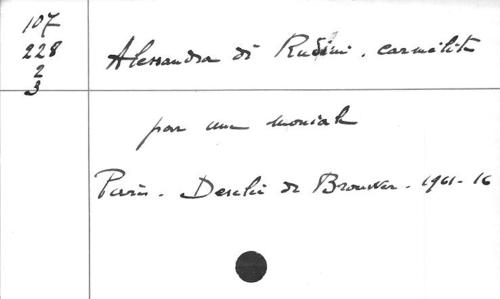 107
228
2
3
Alessandra di Rudini. carmélite
par une moniale
Paris. Desclée de Brouwer. 1961-16